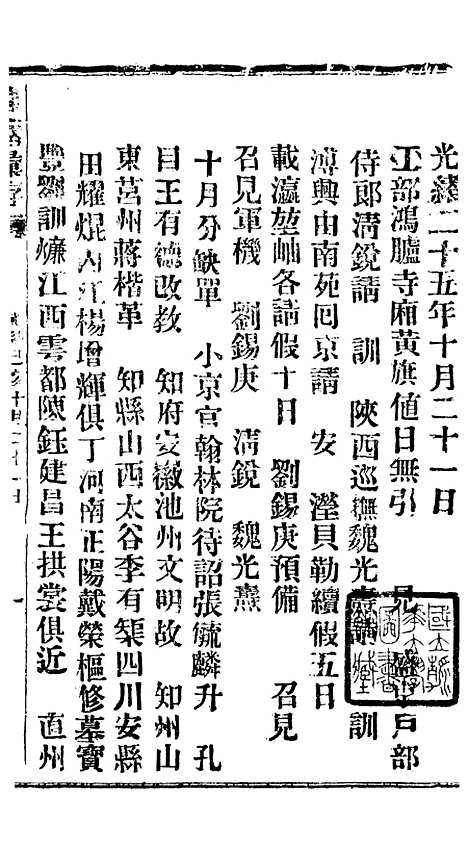 光緒二十五年十月二十一日
工部鴻臚寺廂黃旗值日無引 見 部
侍郎清銳請 訓 陝西巡撫魏光燾請 訓
溥興由南苑回京請 安 瀅貝勒續假五日
載瀛堃岫各請假十日 劉錫庚預備 召見
召見軍機 劉錫庚 清銳 魏光燾
十月分缺單 小京官翰林院待詔張毓麟升 孔
目王有德改教 知府安徽池州文明故 知州山
東莒州蔣楷革 知縣山西太谷李有榘四川安縣
田耀焜內江楊增輝俱丁河南正陽戴榮樞修墓寶
豐劉訓爊江西雩都陳鈺建昌王拱裳俱近 直州